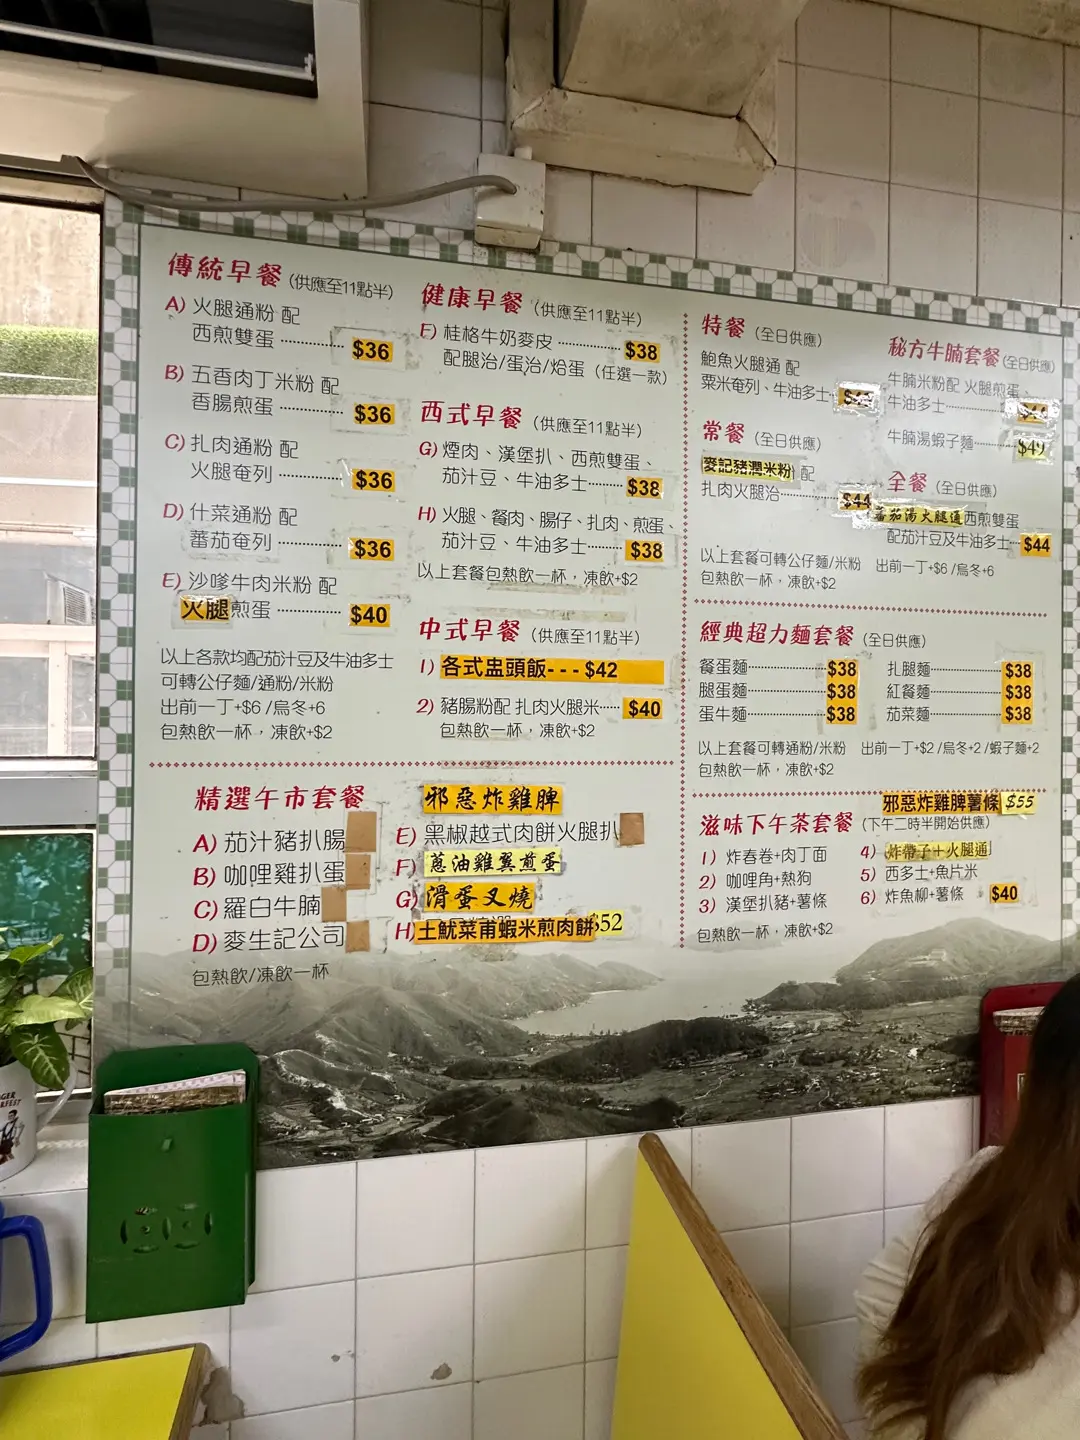 傳統早餐 (供應至11點半)
A) 火腿通粉 配
西煎雙蛋 $36
B) 五香肉丁米粉 配
香腸煎蛋 $36
C) 扎肉通粉 配
火腿奄列 $36
D) 什菜通粉 配
蕃茄奄列 $36
E) 沙嗲牛肉米粉 配
火腿煎蛋 $40
以上各款均配茄汁豆及牛油多士
可轉公仔麵/通粉/米粉
出前一丁+$6 /烏冬+6
包熱飲一杯，凍飲+$2
健康早餐 (供應至11點半)
F) 桂格牛奶麥皮 $38
配腿治/蛋治/烚蛋 (任選一款)
西式早餐 (供應至11點半)
G) 煙肉、漢堡扒、西煎雙蛋、
茄汁豆、牛油多士 $38
H) 火腿、餐肉、腸仔、扎肉、煎蛋、
茄汁豆、牛油多士 $38
以上套餐包熱飲一杯，凍飲+$2
中式早餐 (供應至11點半)
1) 各式盅頭飯---$42
2) 豬腸粉配 扎肉火腿米 $40
包熱飲一杯，凍飲+$2
特餐 (全日供應)
鮑魚火腿通 配
粟米奄列、牛油多士
常餐 (全日供應)
麥記豬潤米粉 配
扎肉火腿治 $44
秘方牛腩套餐 (全日供應)
牛腩米粉配 火腿煎蛋、
牛油多士
牛腩湯蝦子麵 $49
全餐 (全日供應)
蕃茄湯火腿通 西煎雙蛋
配茄汁豆及牛油多士 $44
以上套餐可轉公仔麵/米粉 出前一丁+$6 /烏冬+6
包熱飲一杯，凍飲+$2
經典超力麵套餐 (全日供應)
餐蛋麵 $38
腿蛋麵 $38
蛋牛麵 $38
扎腿麵 $38
紅餐麵 $38
茄菜麵 $38
以上套餐可轉通粉/米粉 出前一丁+$2 /烏冬+2 /蝦子麵+2
包熱飲一杯，凍飲+$2
精選午市套餐
A) 茄汁豬扒腸
B) 咖哩雞扒蛋
C) 羅白牛腩
D) 麥生記公司
包熱飲/凍飲一杯
邪惡炸雞脾
E) 黑椒越式肉餅火腿扒
F) 蔥油雞翼煎蛋
G) 滑蛋叉燒
H) 土魷菜甫蝦米煎肉餅 $52
邪惡炸雞脾薯條 $55
滋味下午茶套餐 (下午二時半開始供應)
1) 炸春卷+肉丁面
2) 咖哩角+熱狗
3) 漢堡扒豬+薯條
4) 炸帶子+火腿通
5) 西多士+魚片米
6) 炸魚柳+薯條 $40
包熱飲一杯，凍飲+$2